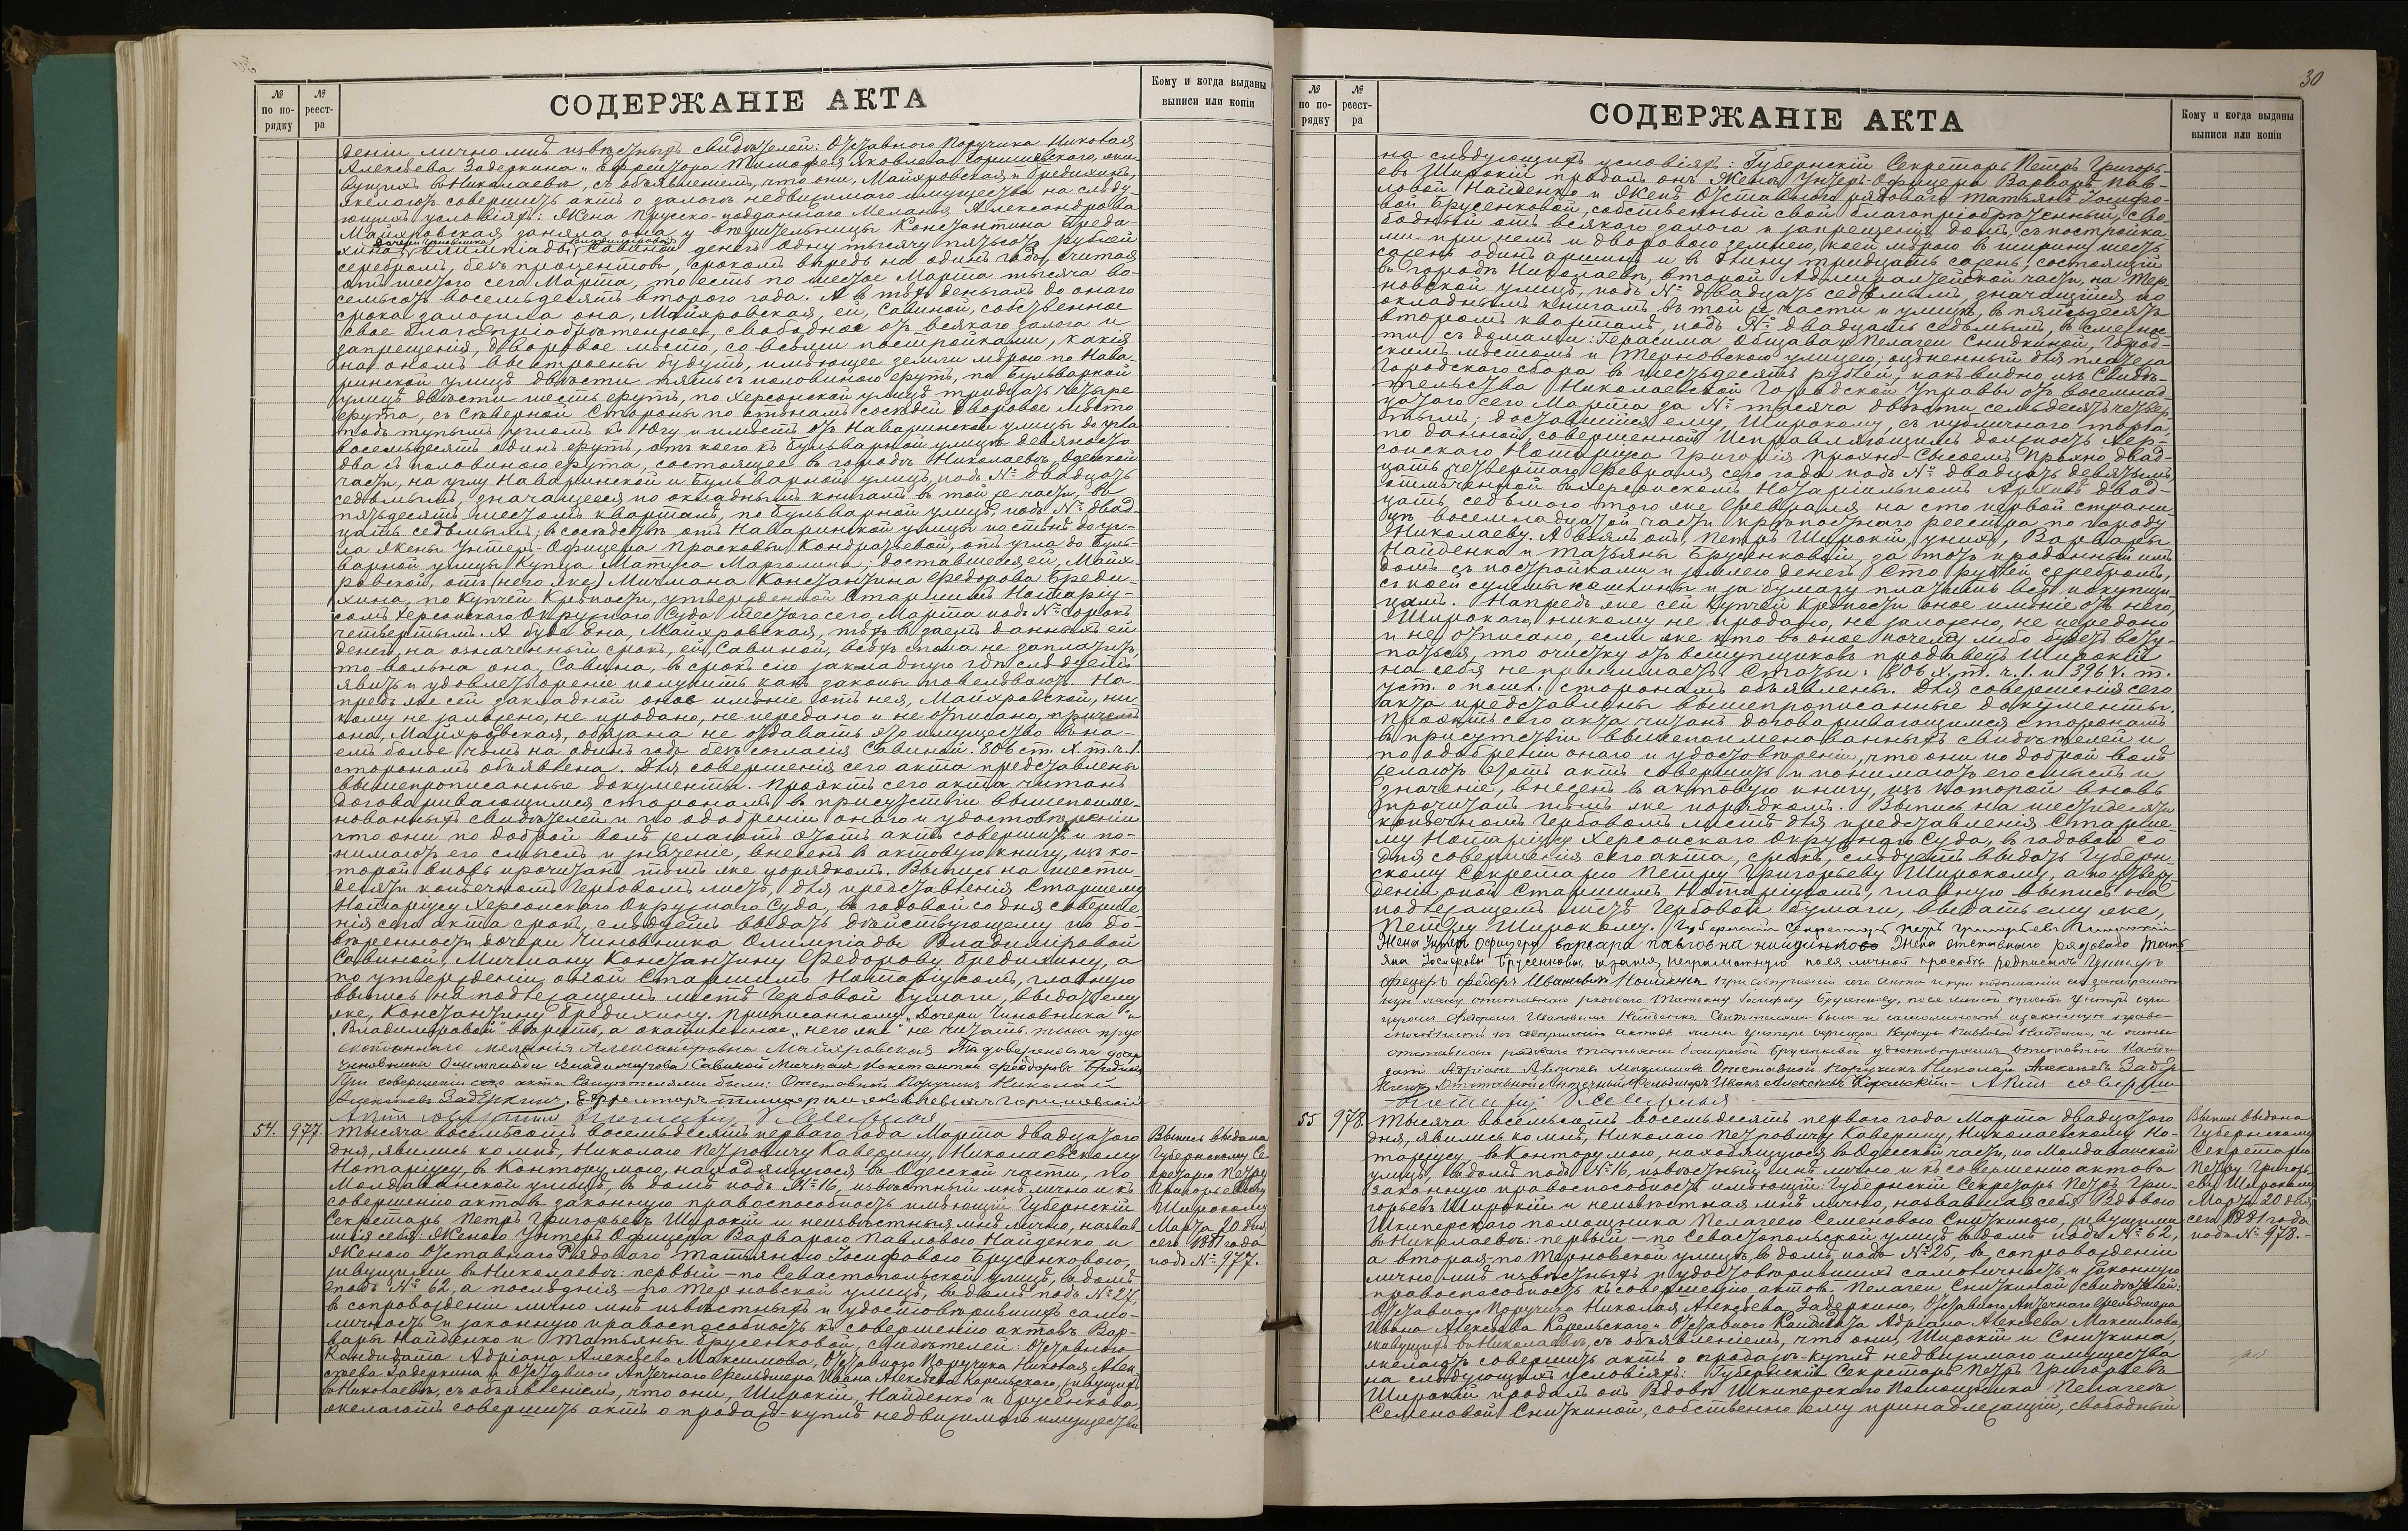 № по порядку
№ реестра
СОДЕРЖАНІЕ АКТА
Кому и когда выданы выписи или копіи
деніи лично мнѣ извѣстныхъ свидѣтелей: Отставного Поручика Николая
Алексѣева Задеркина и Ефрейтора Тимофея Яковлева Горишевскаго, жи-
вущихъ въ Николаевѣ, съ объявленіемъ, что они, Майхровская и Бредихинъ,
желаютъ совершить актъ о залогѣ недвижимаго имущества на слѣду-
ющихъ условіяхъ: Жена Прусско-подданнаго Меланья Александрова
Майхровская заняла она у вѣрительницы Константина Бреди-
дочери Чиновника Владиміровой
хина, Олимпіады Савиной денегъ одну тысячу пятьсотъ рублей
серебромъ, безъ процентовъ, срокомъ впредь на одинъ годъ, считая
отъ шестого сего Марта, то есть по шестое Марта тысяча во-
семьсотъ восемьдесятъ второго года. А въ тѣхъ деньгахъ до онаго
срока заложила она, Майхровская, ей, Савиной, собственное
свое благопріобрѣтенное, свободное отъ всякаго залога и
запрещенія, дворовое мѣсто, со всѣми постройками, какія
на ономъ выстроены будутъ, имѣющее земли мѣрою по Нава-
ринской улицѣ двѣсти пять съ половиною футъ, по Бульварной
улицѣ двѣсти шесть футъ, по Херсонской улицѣ тридцать четыре
фута, съ Сѣверной Стороны по стѣнамъ сосѣдей дворовое мѣсто
подъ тупымъ угломъ къ Югу и имѣетъ отъ Наваринской улицы до угла
восемьдесятъ одинъ футъ, отъ коего къ Бульварной улицѣ девяносто
два съ половиною фута, состоящее въ городѣ Николаевѣ, Одесской
части, на углу Наваринской и Бульварной улицъ, подъ № двадцать
седьмымъ, значащееся по окладнымъ книгамъ въ той же части, въ
пятьдесятъ шестомъ кварталѣ, по Бульварной улицѣ, подъ № двад-
цать седьмымъ, въ сосѣдствѣ отъ Наваринской улицы по стѣнѣ до уг-
ла Жены Унтеръ-Офицера Прасковьи Кондратьевой, отъ угла до Буль-
варной улицы Купца Матуса Марголина; доставшееся ей, Майх-
ровской, отъ (него же) Мичмана Константина Федорова Бреди-
хина, по Купчей Крѣпости, утвержденной Старшимъ Нотаріу-
сомъ Херсонскаго Окружнаго Суда шестого сего Марта подъ № сорокъ
четвертымъ. А буде она, Майхровская, тѣхъ въ заемъ данныхъ ей
денегъ, на означенный срокъ, ей, Савиной, всѣхъ сполна не заплатитъ,
то вольна она, Савина, въ срокъ сію закладную гдѣ слѣдуетъ
явить и удовлетвореніе получить какъ законы повелѣваютъ. На-
предъ же сей закладной оное имѣніе отъ нея, Майхровской, ни
кому не заложено, не продано, не передано и не описано, причемъ
она, Майхровская, обязана не отдавать это имущество въ на-
емъ болѣе чѣмъ на одинъ годъ безъ согласія Савиной. 806 ст. X т. ч. 1.
сторонамъ объявлена. Для совершенія сего акта представлены
вышепрописанные документы. Проэктъ сего акта читанъ
договаривающимся сторонамъ въ присутствіи вышепоиме-
нованныхъ свидѣтелей и по одобреніи онаго и удостовѣреніи
что они по доброй волѣ желаютъ этотъ актъ совершить и по-
нимаютъ его смыслъ и значеніе, внесенъ въ актовую книгу, изъ ко-
торой вновь прочитанъ тѣмъ же порядкомъ. Выпись на шести-
десяти копѣечномъ гербовомъ листѣ, для представленія Старшему
Нотаріусу Херсонскаго Окружнаго Суда, въ годовой со дня соверше-
нія сего акта срокъ, слѣдуетъ выдать дѣйствующему по до-
вѣренности дочери Чиновника Олимпіады Владиміровой
Савиной, Мичману Константину Федорову Бредихину, а
по утвержденіи оной Старшимъ Нотаріусомъ, главную
выпись на подлежащемъ листѣ Гербовой бумаги, выдать ему
же, Константину Бредихину. Приписанному „Дочери Чиновника“ и
„Владиміровой“ вѣрить, а окавыченное „него же“ не читать. Жена прус
скоподаннаго Меланія Александровна Майхровская По доверенности дочери
чиновника Олимпиады Владимировой Савиной Мичманъ Константинъ Федоровъ Бредихинъ
При совершеніи сего акта Свидѣтелями были: Отставной Поручикъ Николай
Алексѣевъ Задёркинъ. Ефрейторъ Тимофей Яковлевичъ Горишевскій
Актъ совершилъ Нотаріусъ Каверинъ
54.
977
Тысяча восемьсотъ восемьдесятъ перваго года Марта двадцатого
дня, явились ко мнѣ, Николаю Петровичу Каверину, Николаевскому
Нотаріусу, въ Контору мою, находящуюся въ Одесской части, по
Молдаванской улицѣ, въ домѣ подъ № 16, извѣстный мнѣ лично и къ
совершенію актовъ законную правоспособность имѣющій Губернскій
Секретарь Петръ Григорьевъ Широкій и неизвѣстныя мнѣ лично, назвав-
шія себя: Женою Унтеръ Офицера Варварою Павловою Найденко и
Женою Отставнаго Рядоваго Татьяною Іосифовою Брусенковою,
живущими въ Николаевѣ: первый – по Севастопольской улицѣ, въ домѣ
подъ № 62, а послѣднія – по Терновской улицѣ, въ домѣ подъ № 27,
въ сопровожденіи лично мнѣ извѣстныхъ и удостовѣрившихъ само-
личность и законную правоспособность къ совершенію актовъ Вар-
вары Найденко и Татьяны Брусенковой, свидѣтелей: Отставного
Кандидата Адріана Алексѣева Максимова, Отставного Поручика Николая Алек-
сѣева Задеркина и Отставного Аптечнаго Фельдшера Ивана Алексѣева Карельскаго, живущихъ
въ Николаевѣ, съ объявленіемъ, что они, Широкій, Найденко и Брусенкова,
желаютъ совершить актъ о продажѣ-куплѣ недвижимаго имущества
Выпись выдана
Губернскому Се-
кретарю Петру
Григорьеву
Широкому
Марта 20 дня
сего 1881 года
подъ № 977.
30
№ по порядку
№ реестра
СОДЕРЖАНІЕ АКТА
Кому и когда выданы выписи или копіи
на слѣдующихъ условіяхъ: Губернскій Секретарь Петръ Григорь-
евъ Широкій продалъ онъ Женѣ Унтеръ-Офицера Варварѣ Пав-
ловой Найденко и Женѣ Отставного рядоваго Татьянѣ Іосифо-
вой Брусенковой, собственный свой благопріобрѣтенный, сво-
бодный отъ всякаго залога и запрещенія домъ, съ постройка-
ми при немъ и дворовою землею, коей мѣрою въ ширину шесть
сажень одинъ аршинъ и въ длину тридцать сажень, состоящій
въ городѣ Николаевѣ, второй Адмиралтейской части, на Тер-
новской улицѣ, подъ № двадцать седьмымъ, значащійся по
окладнымъ книгамъ въ той же части и улицѣ, въ пятьдесятъ
второмъ кварталѣ, подъ № двадцать седьмымъ, въ смежнос-
ти съ домами: Герасима Общава и Пелагеи Снидкиной, Город-
скимъ мѣстомъ и Терновскою улицею; оцѣненный для платежа
городского сбора въ шестьдесятъ рублей, какъ видно изъ Свидѣ-
тельства Николаевской Городской Управы отъ восемнад-
цатого сего Марта за № тысяча двѣсти семьдесятъ четвер-
тымъ; доставшійся ему, Широкому, съ публичнаго торга,
по данной, совершенной Исправляющимъ должность Хер-
сонскаго Нотаріуса Григорія Прохно-Сысоемъ Прохно двад-
цать четвертаго Февраля сего года подъ № двадцать девятымъ,
отмѣченной въ Херсонскомъ Нотаріальномъ Архивѣ двад-
цать седьмого того же Февраля на сто первой страни-
цѣ восемнадцатой части крѣпостнаго реестра по городу
Николаеву. А взялъ онъ, Петръ Широкій, у нихъ, Варвары
Найденко и Татьяны Брусенковой, за тотъ проданный имъ
домъ съ постройками и землею денегъ Сто рублей серебромъ,
съ коей суммы пошлины и за бумагу платить всѣ покупщи-
цамъ. Напредъ же сей Купчей Крѣпости оное имѣніе отъ него,
Широкаго, никому не продано, не заложено, не передано
и не описано, если же кто въ оное почему либо будетъ всту-
паться, то очистку отъ вступщиковъ продавецъ Широкій
на себя не принимаетъ. Статьи: 806 X. т. ч. 1. и 396 V. т.
уст. о пошл. сторонамъ объявлены. Для совершенія сего
акта представлены вышепрописанные документы.
Проэктъ сего акта читанъ договаривающимся сторонамъ
въ присутствіи вышепоименованныхъ свидѣтелей и
по одобреніи онаго и удостовѣреніи, что они по доброй волѣ
желаютъ этотъ актъ совершить и понимаютъ его смыслъ и
значеніе, внесенъ въ актовую книгу, изъ которой вновь
прочитанъ тѣмъ же порядкомъ. Выпись на шестидесяти
копѣечномъ Гербовомъ листѣ для представленія Старше-
му Нотаріусу Херсонскаго Окружнаго Суда, въ годовой со
дня совершенія сего акта, срокъ, слѣдуетъ выдать Губерн-
скому Секретарю Петру Григорьеву Широкому, а по утверж-
деніи оной Старшимъ Нотаріусомъ, главную выпись на
подлежащемъ листѣ Гербовой бумаги, выдать ему же,
Петру Широкому. Губернскій Секретарь Петръ Григорьевъ Широкій
Жена Унтеръ Офицера варвара павловна найдинкова Жена отставного рядового Тать
яна Іосифова Брусенкова, а за нея, неграмотную по ея личной просьбѣ росписался Унтеръ
Офицеръ Федоръ Ивановичъ При совершеніи сего акта и при подписаніи его за неграмот-
ную жену отставного рядоваго Татьяну Іосифову Брусенкову, по ея личной просьбѣ Унтеръ офи-
церомъ Федоромъ Ивановымъ Свидѣтелями были и самоличность и законную право-
способность къ совершенію актовъ жены Унтеръ офицера Варвары Павловой Найденко, и жены
отставного рядоваго Татьяны Іосифовой Брусенковой удостовѣрили: Отставной Канди-
датъ Адріанъ Алексѣевъ Максимовъ Отставной Поручикъ Николай Алексѣевъ Задёр-
кинъ Отставной Аптечный Фельдшеръ Иванъ Алексѣевъ Карельскій – Актъ совершилъ
Нотаріусъ Каверинъ
55
978.
Тысяча восемьсотъ восемьдесятъ перваго года Марта двадцатого
дня, явились ко мнѣ, Николаю Петровичу Каверину, Николаевскому Но-
таріусу, въ Контору мою, находящуюся въ Одесской части, по Молдаванской
улицѣ, въ домѣ подъ № 16, извѣстный мнѣ лично и къ совершенію актовъ
законную правоспособность имѣющій Губернскій Секретарь Петръ Гри-
горьевъ Широкій и неизвѣстная мнѣ лично, назвавшая себя Вдовою
Шкиперскаго помощника Пелагеею Семеновою Снижкиною, живущими
въ Николаевѣ: первый – по Севастопольской улицѣ въ домѣ подъ № 62,
а вторая – по Терновской улицѣ въ домѣ подъ № 25, въ сопровожденіи
лично мнѣ извѣстныхъ и удостовѣрившихъ самоличность и законную
правоспособность къ совершенію актовъ Пелагеи Снижкиной свидѣтелей:
Отставного Поручика Николая Алексѣева Задеркина, Отставного Аптечнаго Фельдшера
Ивана Алексѣева Карельскаго и Отставного Кандидата Адріана Алексѣева Максимова,
живущихъ въ Николаевѣ, съ объявленіемъ, что они, Широкій и Снижкина,
желаютъ совершить актъ о продажѣ-куплѣ недвижимаго имущества
на слѣдующихъ условіяхъ: Губернскій Секретарь Петръ Григорьевъ
Широкій продалъ онъ Вдовѣ Шкиперскаго Помощника Пелагеѣ
Семеновой Снижкиной, собственно ему принадлежащій, свободный
Выпись выдана
Губернскому
Секретарю
Петру Григорь-
еву Широкому
Марта 20 дня
сего 1881 года
подъ № 978.-